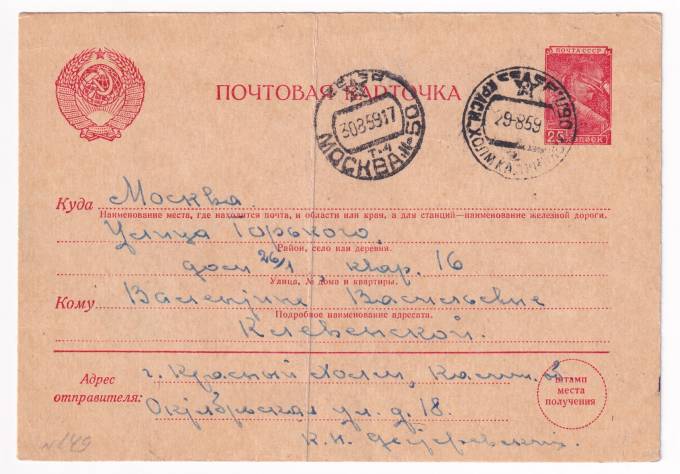 ПОЧТА СССР
ПОЧТОВАЯ КАРТОЧКА
СССР
30859 17
МОСКВА
29-8 59
КРАСН. ХОЛМ
25 КОПЕЕК
Куда Москва.
Наименование места, где находится почта, и области или края, а для станций—наименование железной дороги.
Улица Горького,
Район, село или деревня.
дом 26/1, квар. 16
Улица, № дома и квартиры.
Кому Валентине Васильевне
Подробное наименование адресата.
Клевенской.
Адрес отправителя:
г. Красный Холм, Калин. об.
Октябрьская ул. д. 18.
К. Н.
ШТАМП
МЕСТА
ПОЛУЧЕНИЯ
№149